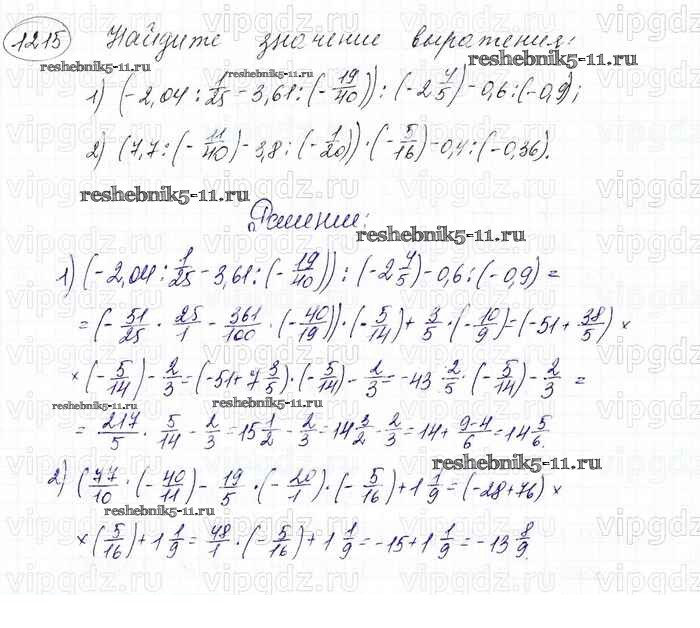 1215 Найдите значение выражения:
reshebnik5-11.ru
reshebnik5-11.ru
reshebnik5-11.ru
1) (-2,04 : 1/25 - 3,61 : (-19/40)) : (-2 4/5) - 0,6 : (-0,9);
2) (7,7 : (-11/40) - 3,8 : (-1/20)) · (-5/16) - 0,4 : (-0,36).
reshebnik5-11.ru
Решение:
reshebnik5-11.ru
1) (-2,04 : 1/25 - 3,61 : (-19/40)) : (-2 4/5) - 0,6 : (-0,9) =
= (-51/25 · 25/1 - 361/100 · (-40/19)) · (-5/14) + 3/5 · (-10/9) = (-51 + 38/5) ×
× (-5/14) - 2/3 = (-51 + 7 3/5) · (-5/14) - 2/3 = -43 2/5 · (-5/14) - 2/3 =
reshebnik5-11.ru
reshebnik5-11.ru
= 217/5 · 5/14 - 2/3 = 15 1/2 - 2/3 = 14 3/2 - 2/3 = 14 + 9-4/6 = 14 5/6.
reshebnik5-11.ru
2) (77/10 · (-40/11) - 19/5 · (-20/1) · (-5/16) + 1 1/9 = (-28 + 76) ×
reshebnik5-11.ru
× (5/16) + 1 1/9 = 48/1 · (-5/16) + 1 1/9 = -15 + 1 1/9 = -13 8/9.
vipgdz.ru